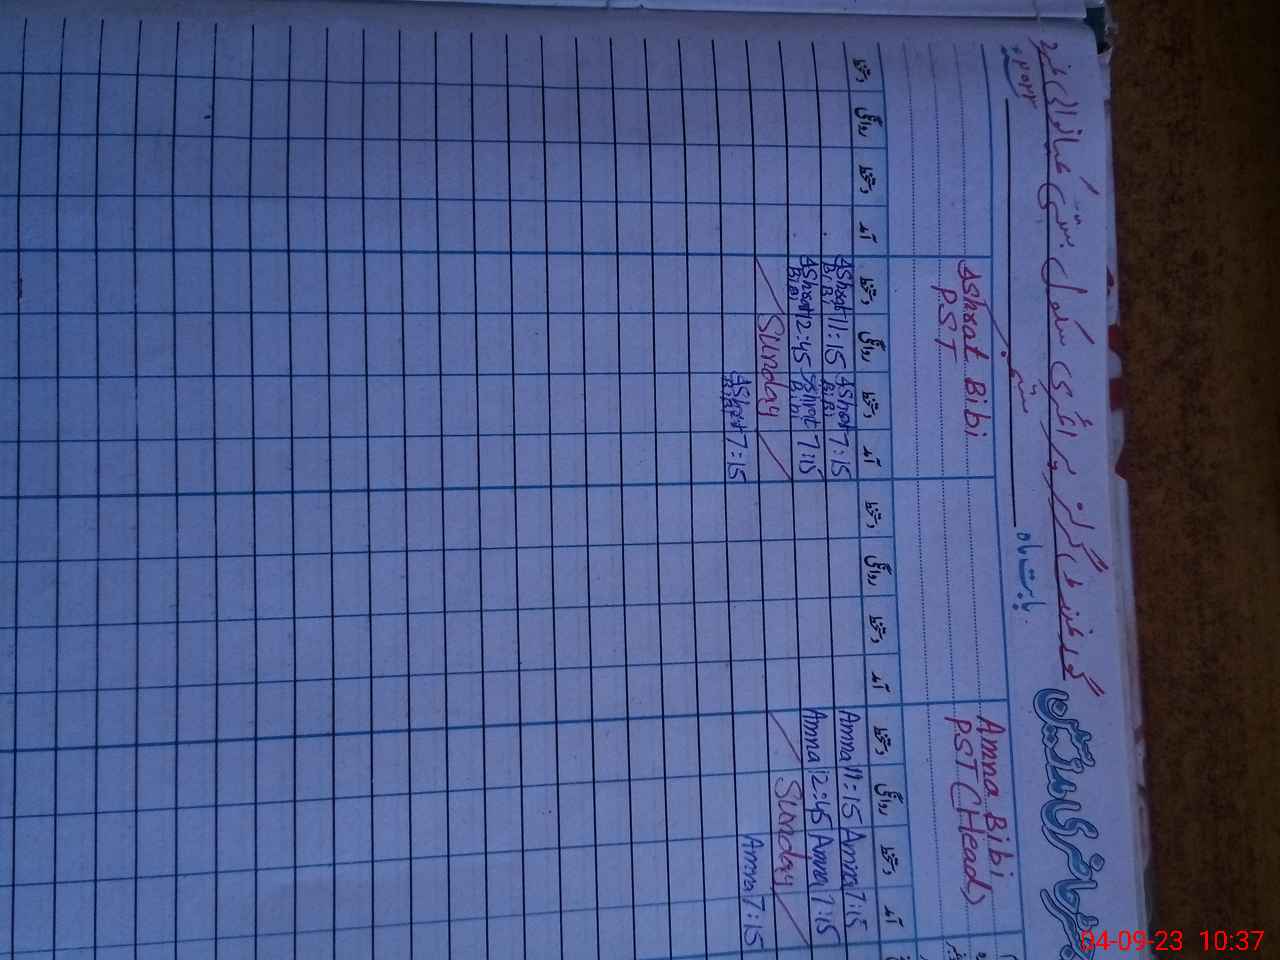 رجسٹر حاضری مدرسین
گورنمنٹ گرلز پرائمری سکول بستی
بابت ماہ
سنہ
Amna Bibi
PST (Head)
Ashrat Bibi
P.S.T
آمد دستخط روانگی دستخط آمد دستخط روانگی دستخط آمد دستخط روانگی دستخط آمد دستخط روانگی دستخط
7:15 Amna 11:15 Amna 7:15 Ashrat Bibi 11:15 Ashrat Bibi
7:15 Amna 12:45 Amna 7:15 Ashrat Bibi 12:45 Ashrat Bibi
Sunday Sunday
7:15 Amna 7:15 Ashrat Bibi
04-09-23 10:37